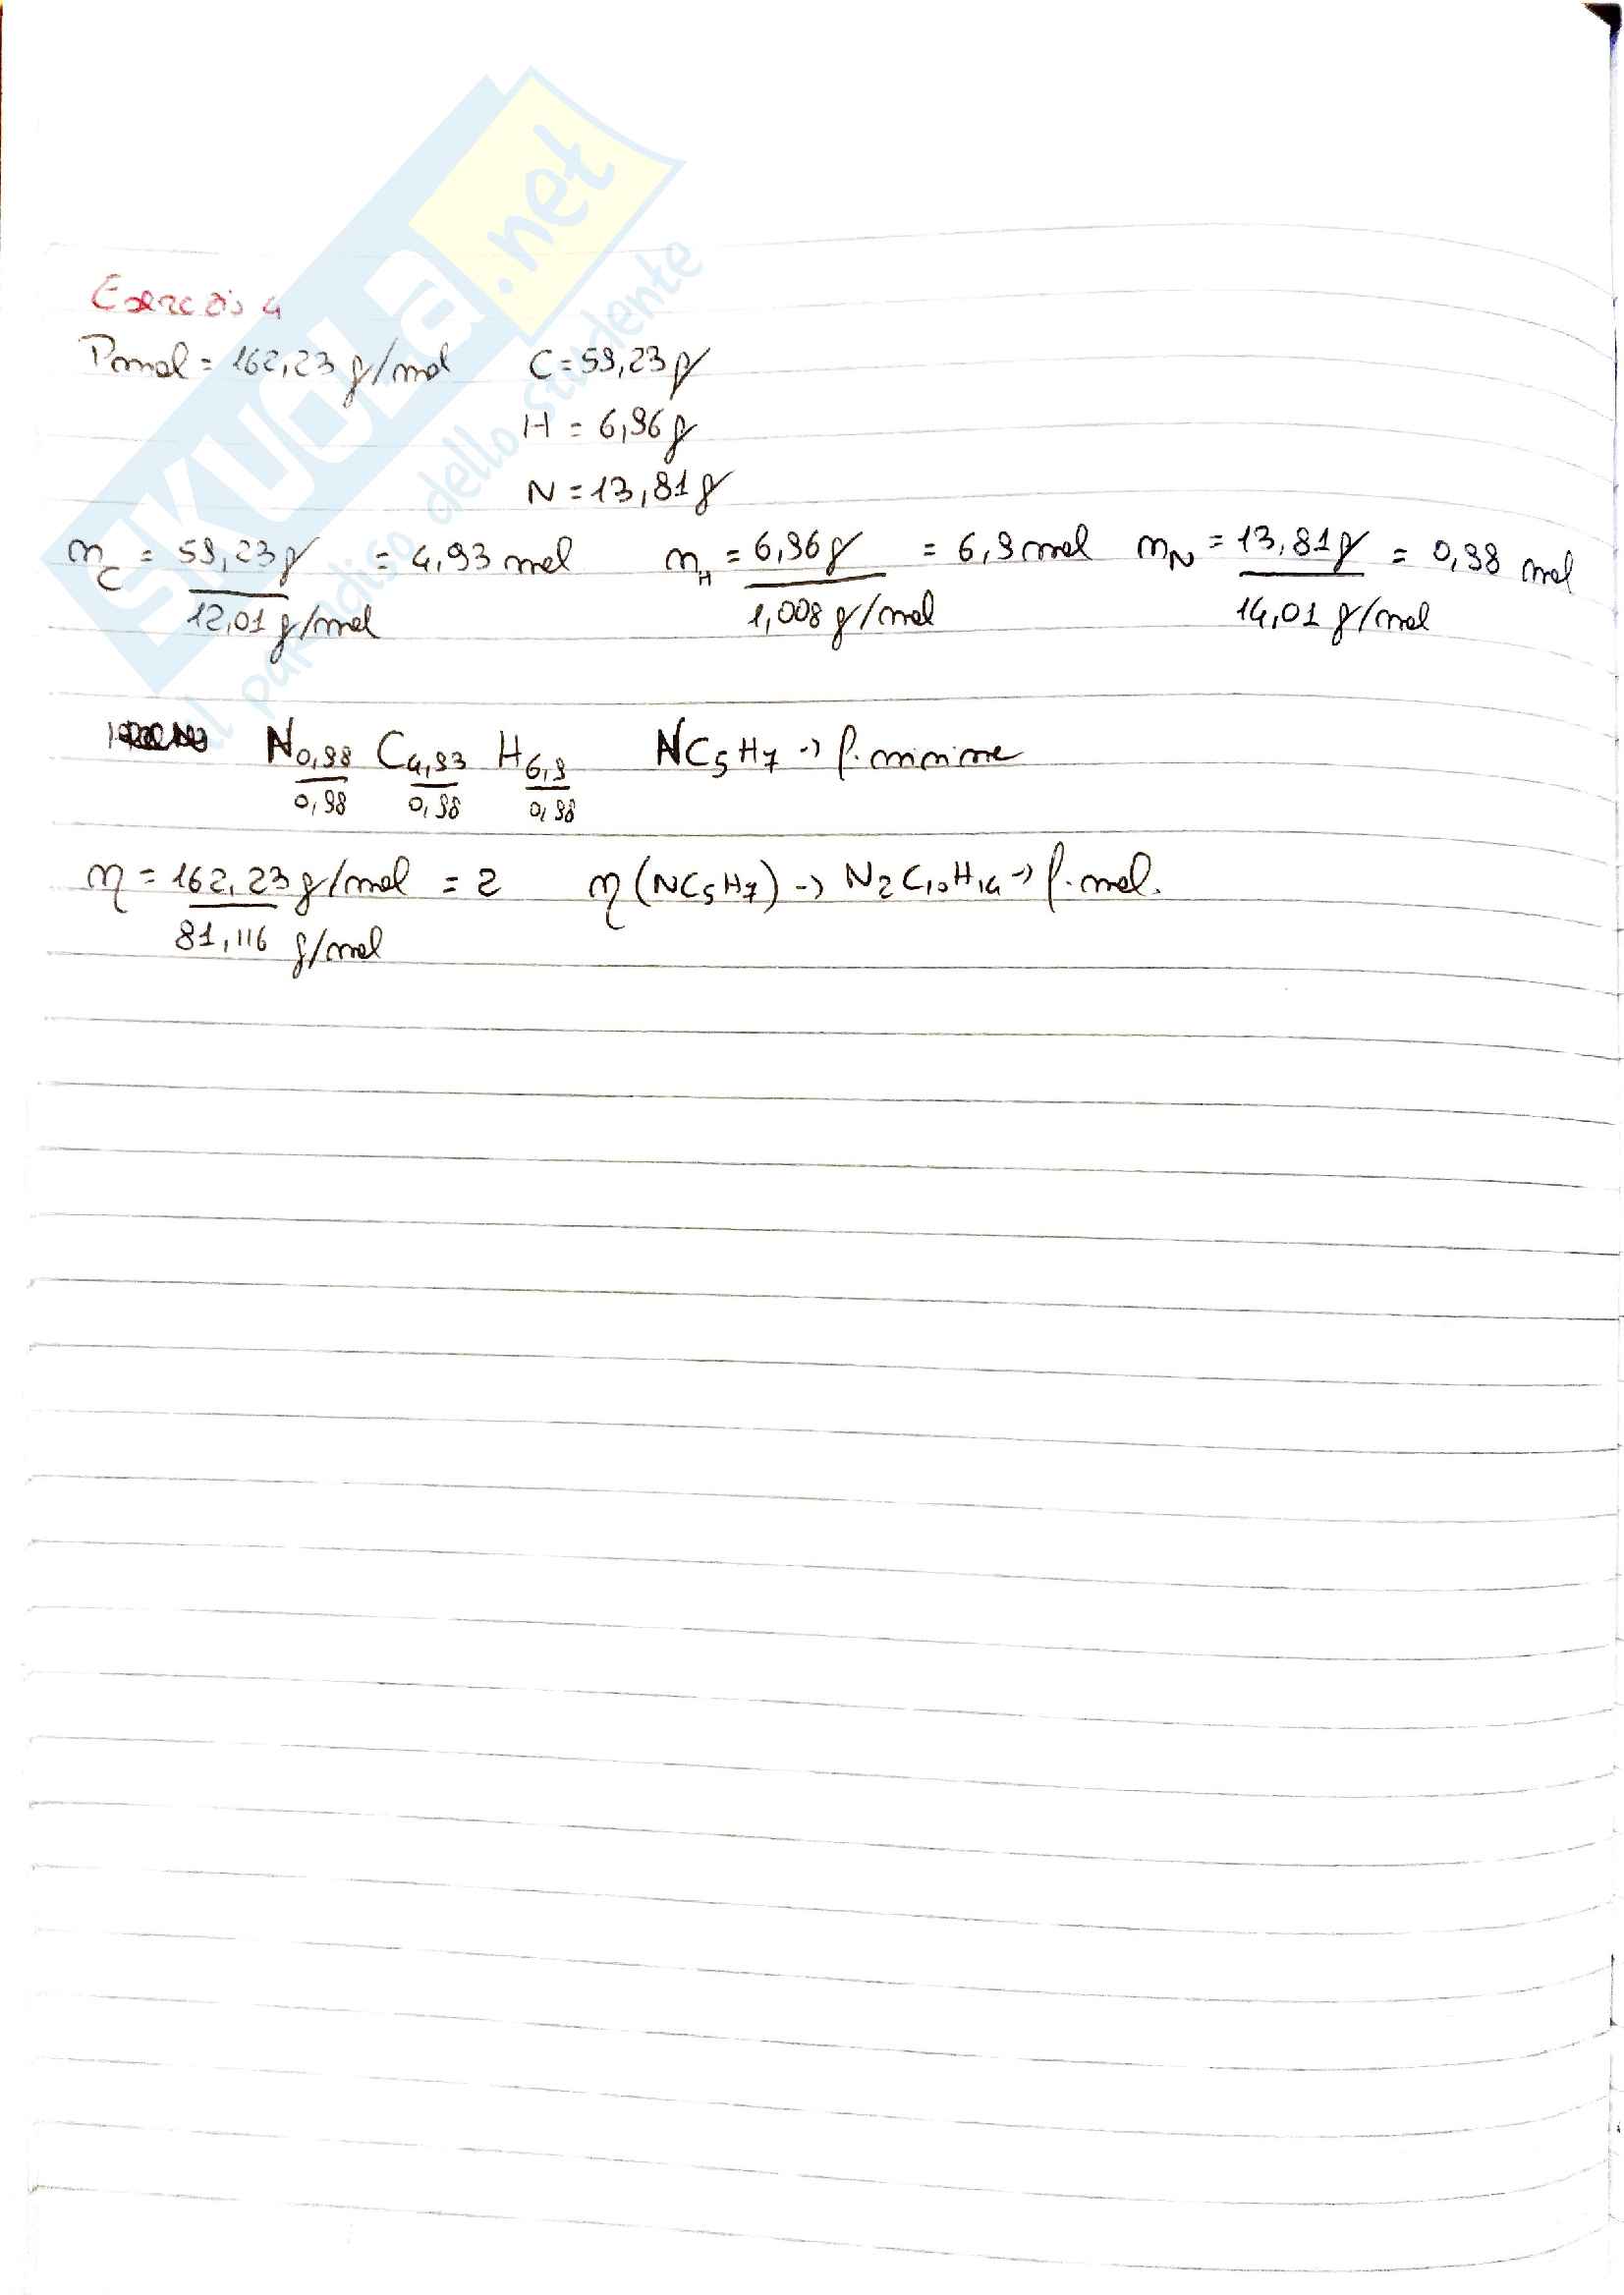 SKUOLA.net
il paradiso dello studente
Esercizio 4
Pmol = 162,23 g/mol C = 59,23 g
H = 6,96 g
N = 13,81 g
nC = 59,23 g / 12,01 g/mol = 4,93 mol nH = 6,96 g / 1,008 g/mol = 6,9 mol nN = 13,81 g / 14,01 g/mol = 0,98 mol
N 0,98/0,98 C 4,93/0,98 H 6,9/0,98 NC5H7 -> f. minima
n = 162,23 g/mol / 81,116 g/mol = 2 n (NC5H7) -> N2C10H14 -> f. mol.